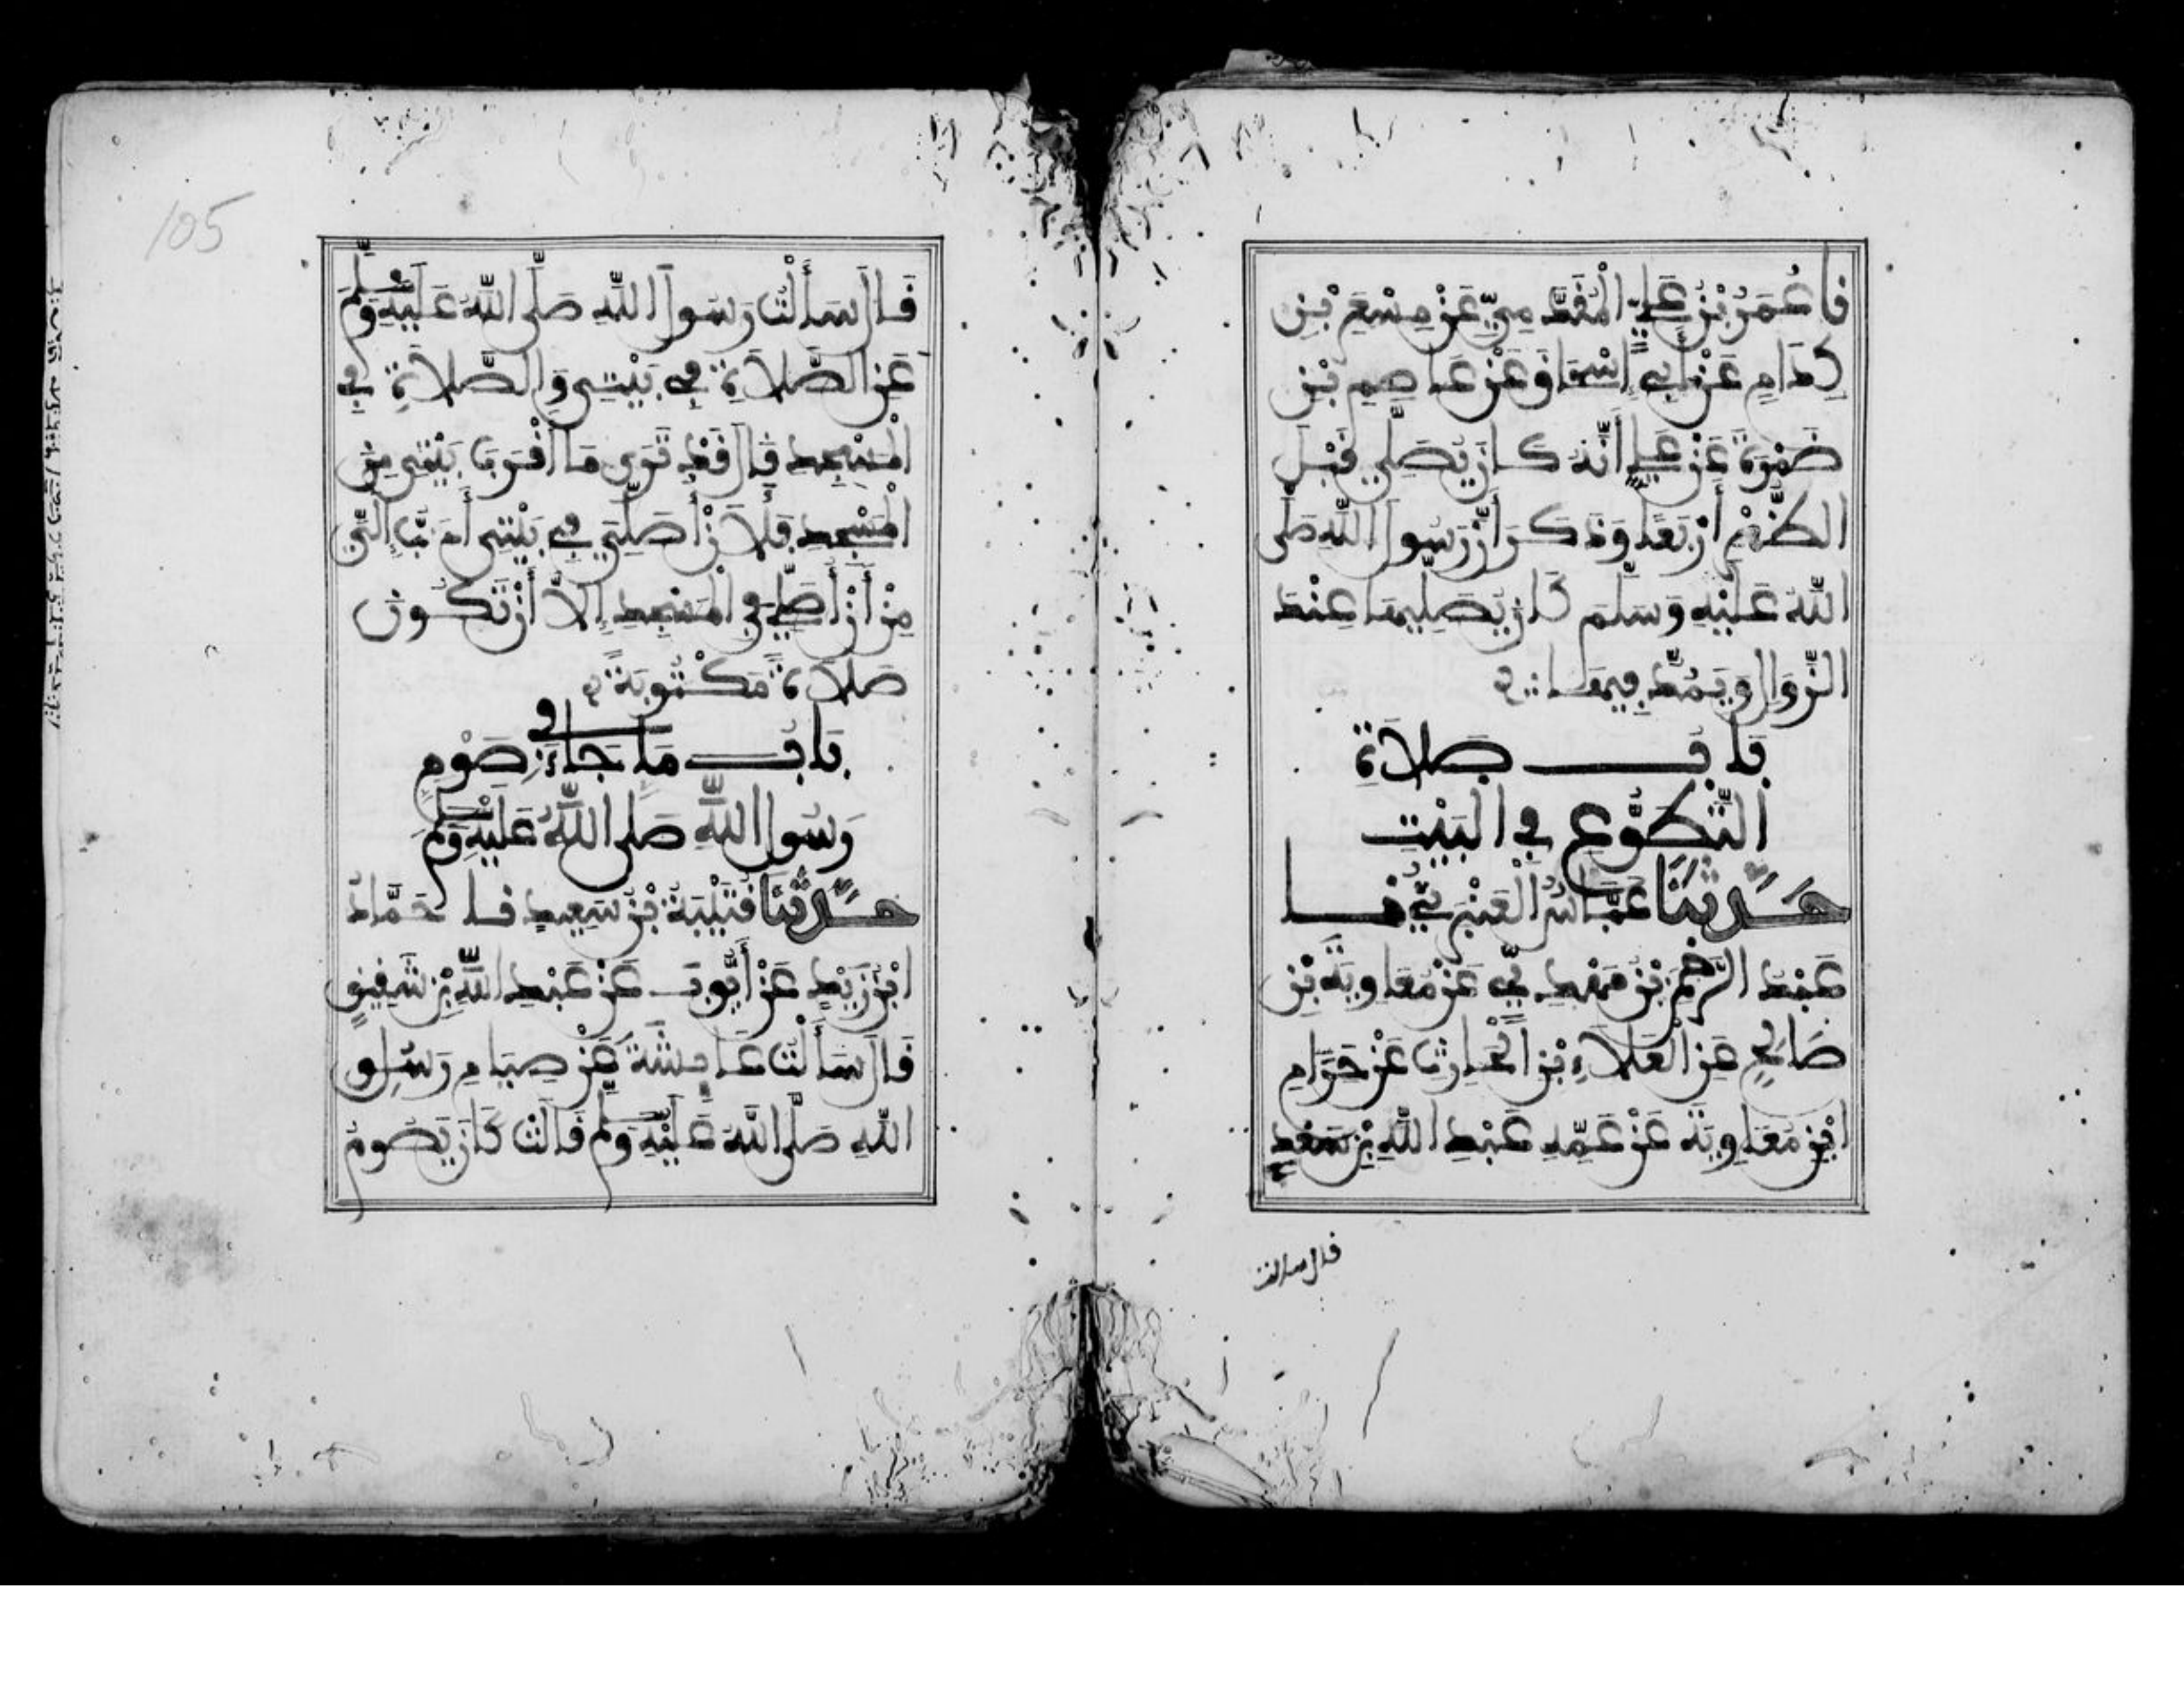 نا عُمَرُ بْنُ عَلِيٍّ الْمُقَدَّمِيُّ عَنْ مِسْعَرِ بْنِ
كِدَامٍ عَنْ أَبِي إِسْحَاقَ عَنْ عَاصِمِ بْنِ
ضَمْرَةَ عَنْ عَلِيٍّ أَنَّهُ كَانَ يُصَلِّي قَبْلَ
الظُّهْرِ أَرْبَعًا وَذَكَرَ أَنَّ رَسُولَ اللَّهِ صَلَّى
اللَّهُ عَلَيْهِ وَسَلَّمَ كَانَ يُصَلِّيهَا عِنْدَ
الزَّوَالِ وَيَمُدُّ فِيهَا
بَابُ صَلَاةِ
التَّطَوُّعِ فِي الْبَيْتِ
حَدَّثَنَا عَبَّاسٌ الْعَنْبَرِيُّ نا
عَبْدُ الرَّحْمَنِ بْنُ مَهْدِيٍّ عَنْ مُعَاوِيَةَ بْنِ
صَالِحٍ عَنِ الْعَلَاءِ بْنِ الْحَارِثِ عَنْ حَرَامِ
ابْنِ مُعَاوِيَةَ عَنْ عَمِّهِ عَبْدِ اللَّهِ بْنِ سَعْدٍ
قال سالت
105
قَالَ سَأَلْتُ رَسُولَ اللَّهِ صَلَّى اللَّهُ عَلَيْهِ وَسَلَّمَ
عَنِ الصَّلَاةِ فِي بَيْتِي وَالصَّلَاةِ فِي
الْمَسْجِدِ قَالَ قَدْ تَرَى مَا أَقْرَبَ بَيْتِي مِنَ
الْمَسْجِدِ فَلَأَنْ أُصَلِّيَ فِي بَيْتِي أَحَبُّ إِلَيَّ
مِنْ أَنْ أُصَلِّيَ فِي الْمَسْجِدِ إِلَّا أَنْ تَكُونَ
صَلَاةً مَكْتُوبَةً
بَابُ مَا جَاءَ فِي صَوْمِ
رَسُولِ اللَّهِ صَلَّى اللَّهُ عَلَيْهِ وَسَلَّمَ
حَدَّثَنَا قُتَيْبَةُ بْنُ سَعِيدٍ نا حَمَّادُ
ابْنُ زَيْدٍ عَنْ أَيُّوبَ عَنْ عَبْدِ اللَّهِ بْنِ شَقِيقٍ
قَالَ سَأَلْتُ عَائِشَةَ عَنْ صِيَامِ رَسُولِ
اللَّهِ صَلَّى اللَّهُ عَلَيْهِ وَسَلَّمَ قَالَتْ كَانَ يَصُومُ